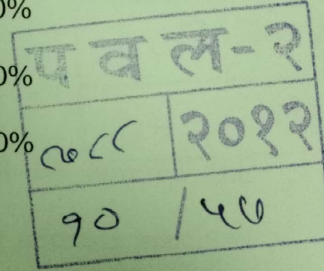 0%
0%
0%
प व ल-२
७८८ २०१२
१० / ५७